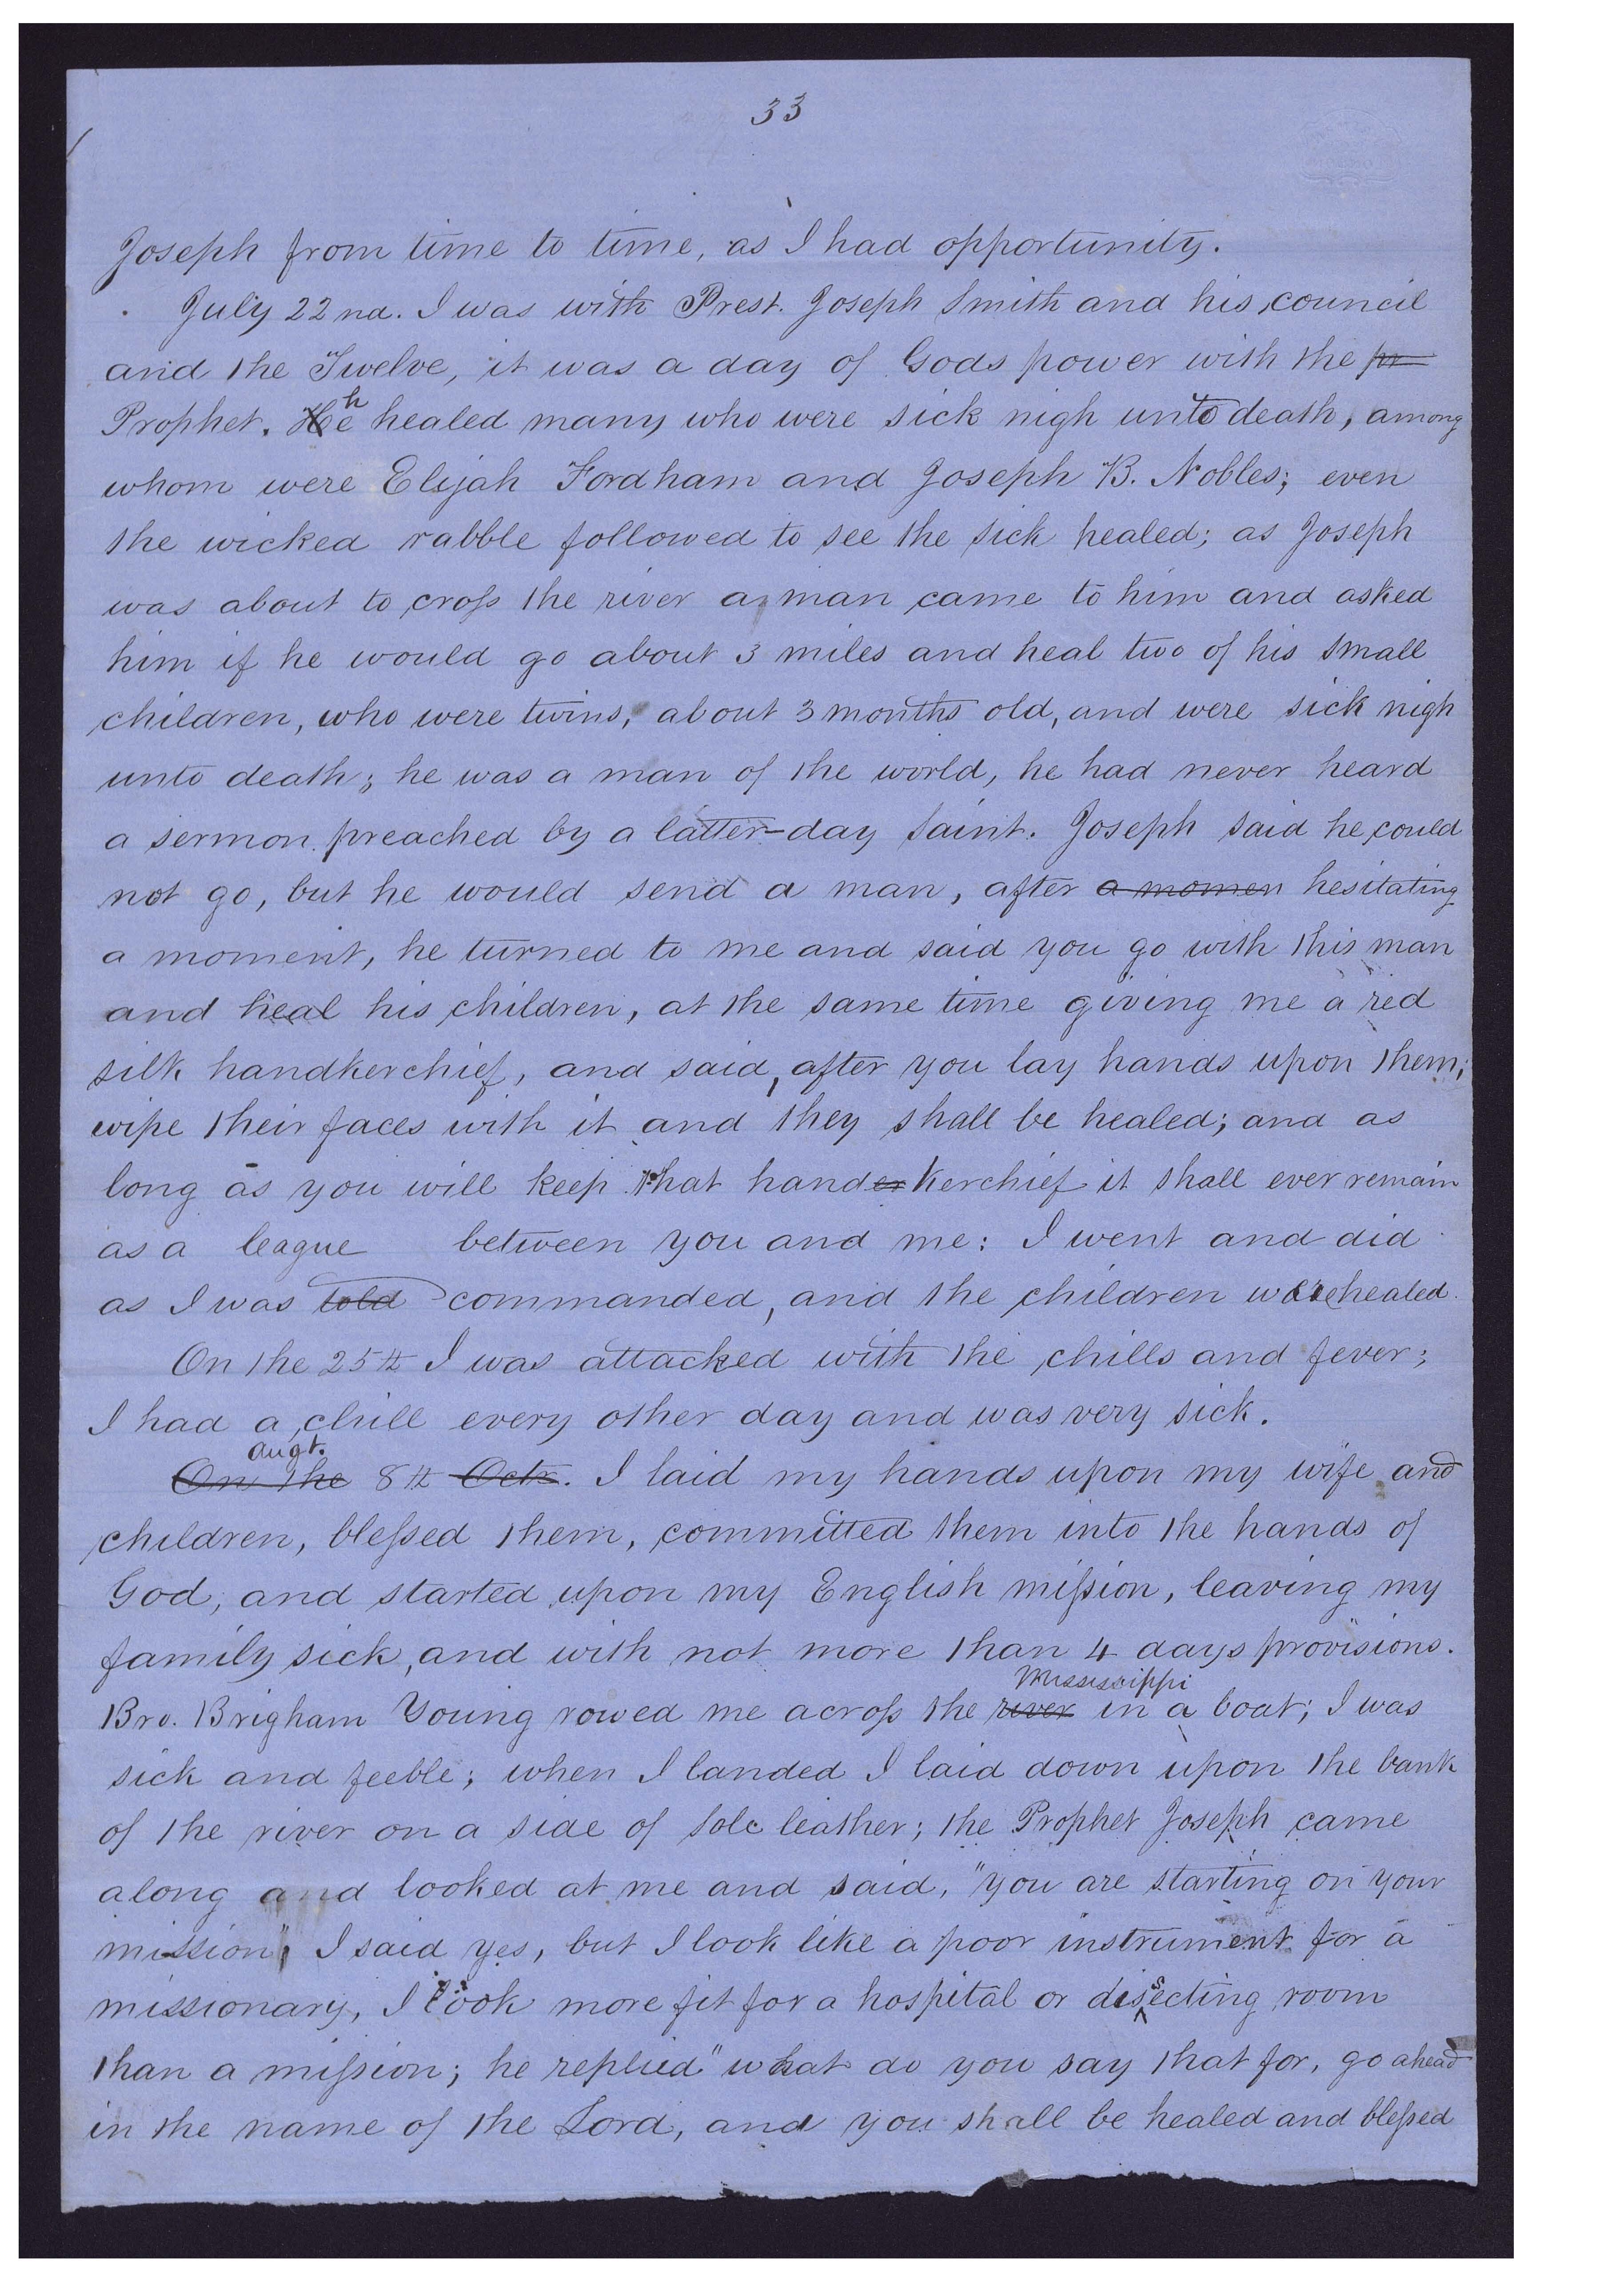 33
Joseph from time to time, as I had opportunity.
July 22nd. I was with Prest. Joseph Smith and his council
and the Twelve, it was a day of Gods power with the pr
Prophet. He h healed many who were sick nigh unto death, among
whom were Elijah Fordham and Joseph B. Nobles; even
the wicked rabble followed to see the sick healed; as Joseph
was about to cross the river a man came to him and asked
him if he would go about 3 miles and heal two of his small
children, who were twins, about 3 months old, and were sick nigh
unto death; he was a man of the world, he had never heard
a sermon preached by a latter-day saint. Joseph said he could
not go, but he would send a man, after a momen hesitating
a moment, he turned to me and said you go with this man
and heal his children, at the same time giving me a red
silk handkerchief, and said, after you lay hands upon them,
wipe their faces with it and they shall be healed; and as
long as you will keep that handerkerchief it shall ever remain
as a league between you and me: I went and did
as I was told commanded, and the children were healed.
On the 25th I was attacked with the chills and fever;
I had a chill every other day and was very sick.
augt.
On the 8th Octr. I laid my hands upon my wife and
children, blessed them, committed them into the hands of
God, and started upon my English mission, leaving my
family sick, and with not more than 4 days provisions.
Mississippi
Bro. Brigham Young rowed me across the river in a boat; I was
sick and feeble; when I landed I laid down upon the bank
of the river on a side of sole leather; the Prophet Joseph came
along and looked at me and said, "you are starting on your
mission", I said yes, but I look like a poor instrument for a
missionary, I look more fit for a hospital or dissecting room
than a mission; he replied "what do you say that for, go ahead
in the name of the Lord, and you shall be healed and blessed